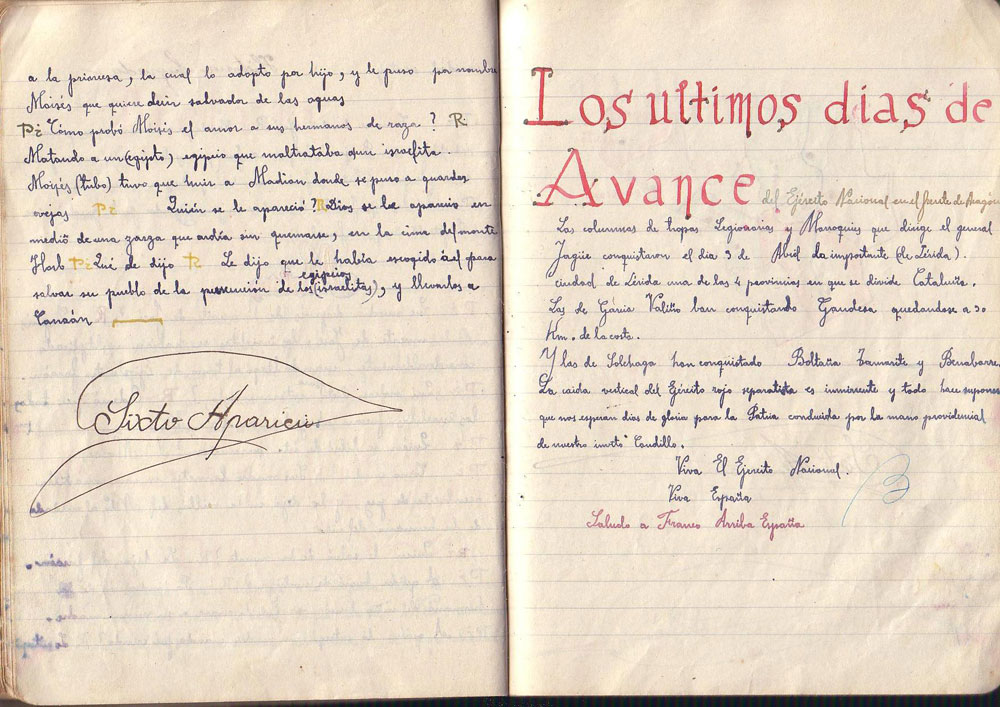 a la princesa, la cual lo adopto por hijo, y le puso por nombre
Moisés que quiere decir salvador de las aguas
P: Cómo probó Moisés el amor a sus hermanos de raza? R:
Matando a un (egijsto) egipcio que maltrataba a un israelita.
Moisés (tubo) tuvo que huir a Madian donde se puso a guardar
ovejas P: Quién se le apareció? R: Dios se le apareció en
medio de una zarza que ardía sin quemarse, en la cima del monte
Horb P: Qué de dijo R: Le dijo que le había escogido a él para
egipcios
salvar su pueblo de la persecución de los (israelitas), y llevarlos a
Canaán
Sixto Aparicio
Los ultimos dias de
Avance del Ejército Nacional en el frente de Aragón
Las columnas de tropas Legionarias y Marroquies que dirige el general
Jagüe conquistaron el dia 3 de Abril la importante (de Lérida).
ciudad de Lérida una de las 4 provincias en que se divide Cataluña.
Las de Gárcia Valiño han conquistando Gandesa quedandose a 30
Km. de la costa.
Y las de Solchaga han conquistado Boltaña Tamarite y Benabarre.
La caida vertical del Ejército rojo separatista es inminente y todo hace suponer
que nos esperan dias de gloria para la Patria conducida por la mano providencial
de nuestro invito Caudillo.
Viva El Ejercito Nacional.
Viva España
Saludo a Franco Arriba España